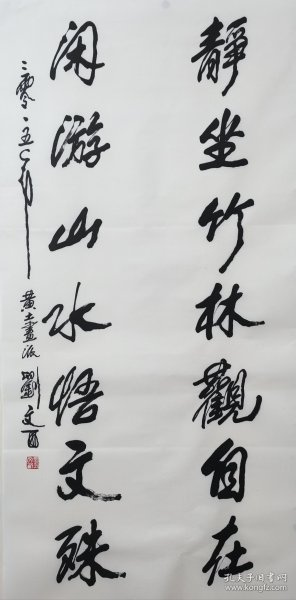 靜坐竹林觀自在
閑游山水悟文殊
二零一五年
黃土畫派劉文西
孔夫子旧书网